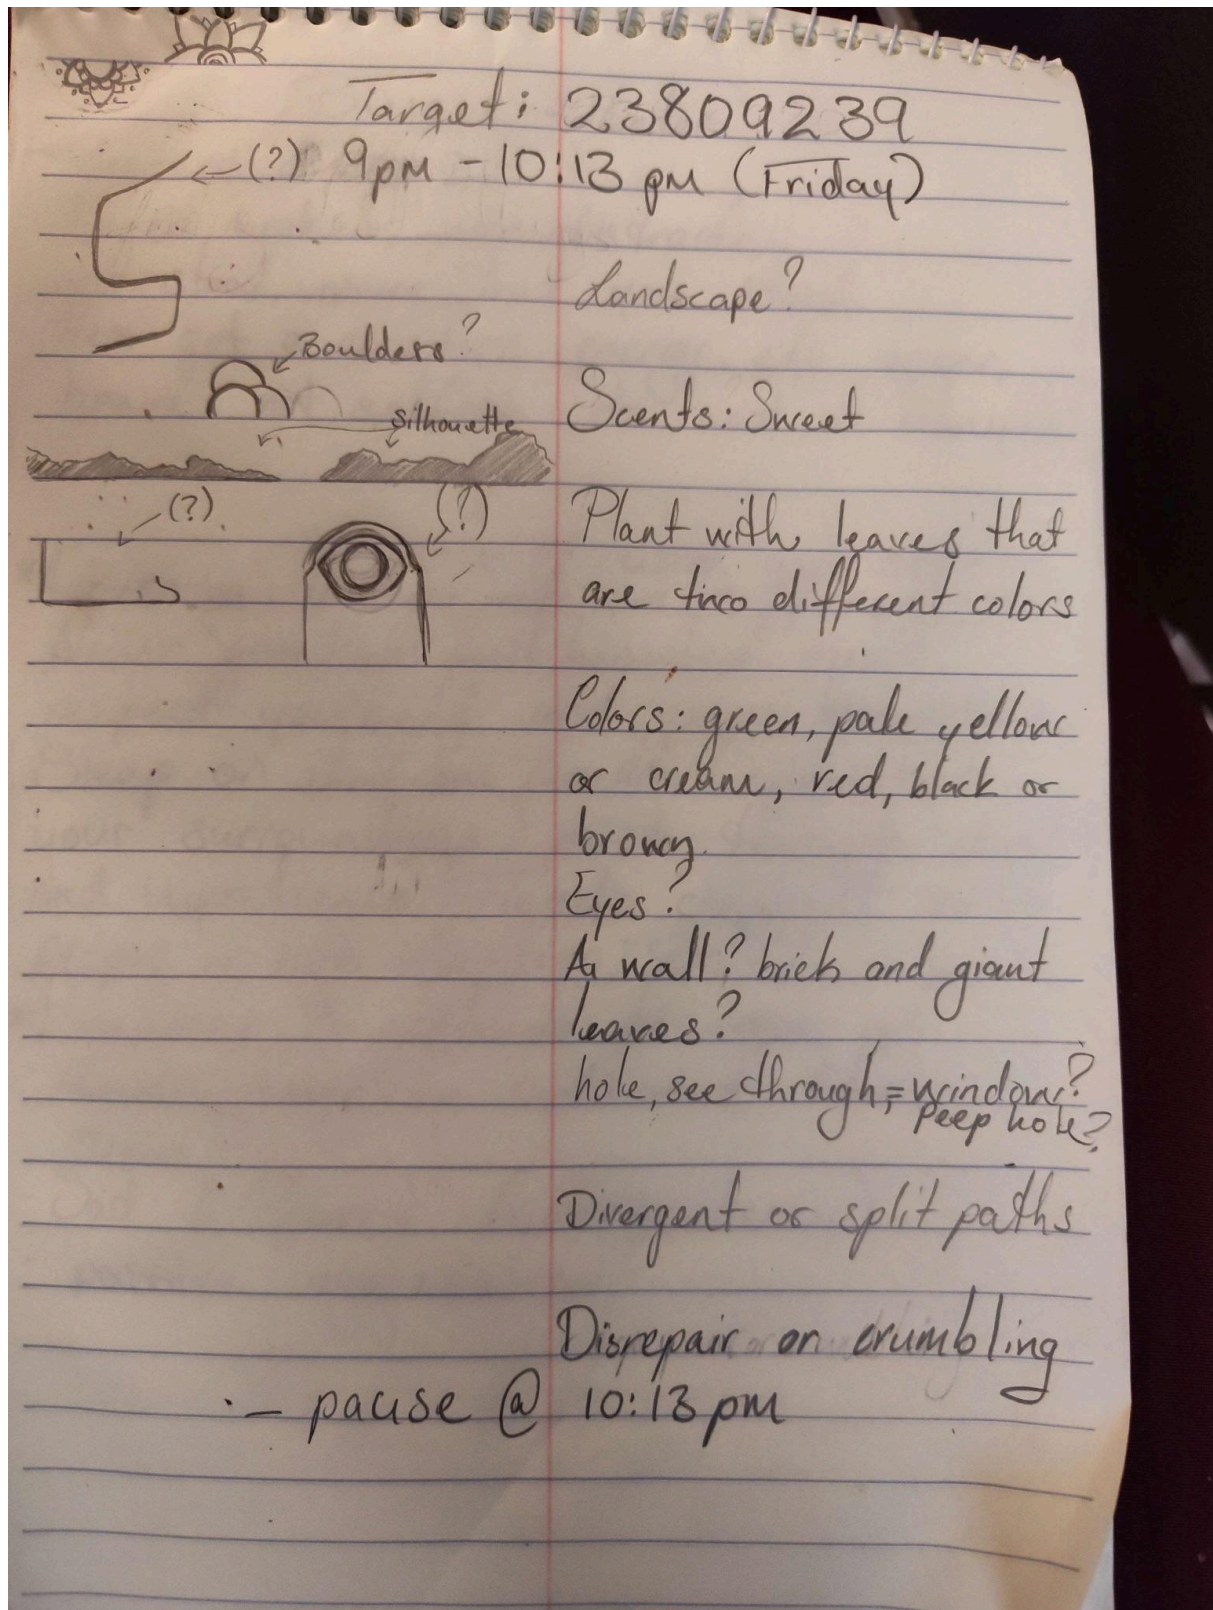 Target: 23809239
(?) 9pm - 10:13 pm (Friday)
Landscape?
Boulders?
Scents: Sweet
Silhouette
(?)
(?)
Plant with leaves that
are two different colors
Colors: green, pale yellow
or cream, red, black or
brown.
Eyes?
A wall? brick and giant
leaves?
hole, see through, = window?
Peep hole?
Divergent or split paths
Disrepair or crumbling
- pause @ 10:13 pm